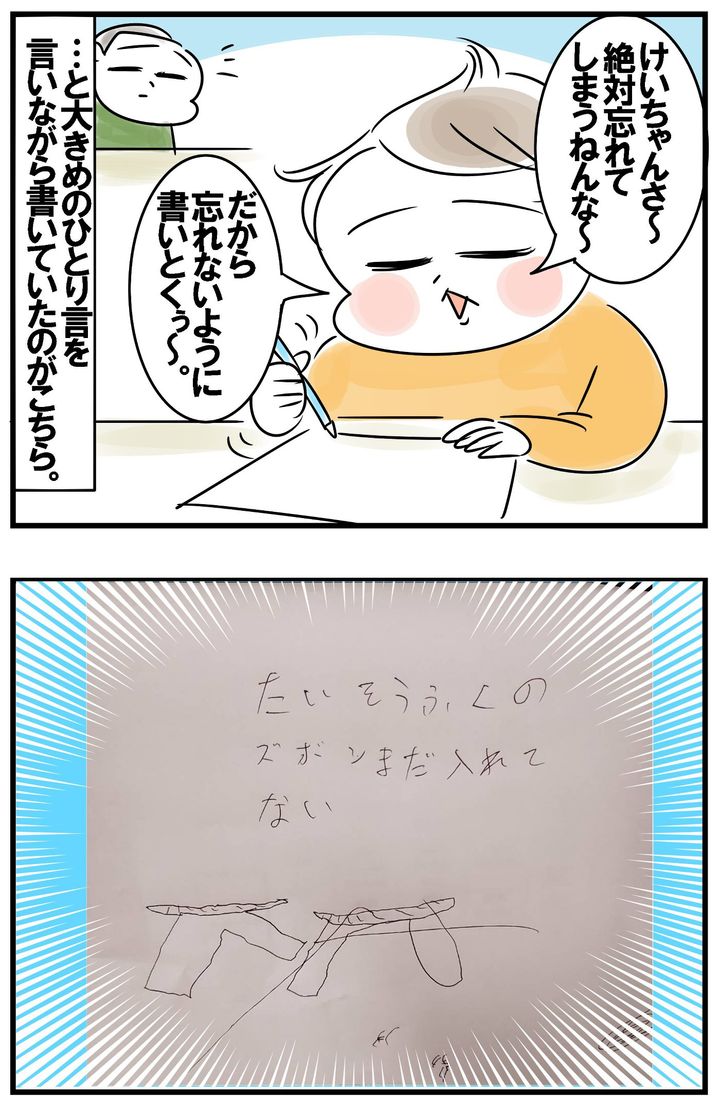 けいちゃんさ〜
絶対忘れて
しまうねんな〜
だから
忘れないように
書いとくぅ〜。
…と大きめのひとり言を
言いながら書いていたのがこちら。
たいそうふくの
ズボンまだ入れて
ない